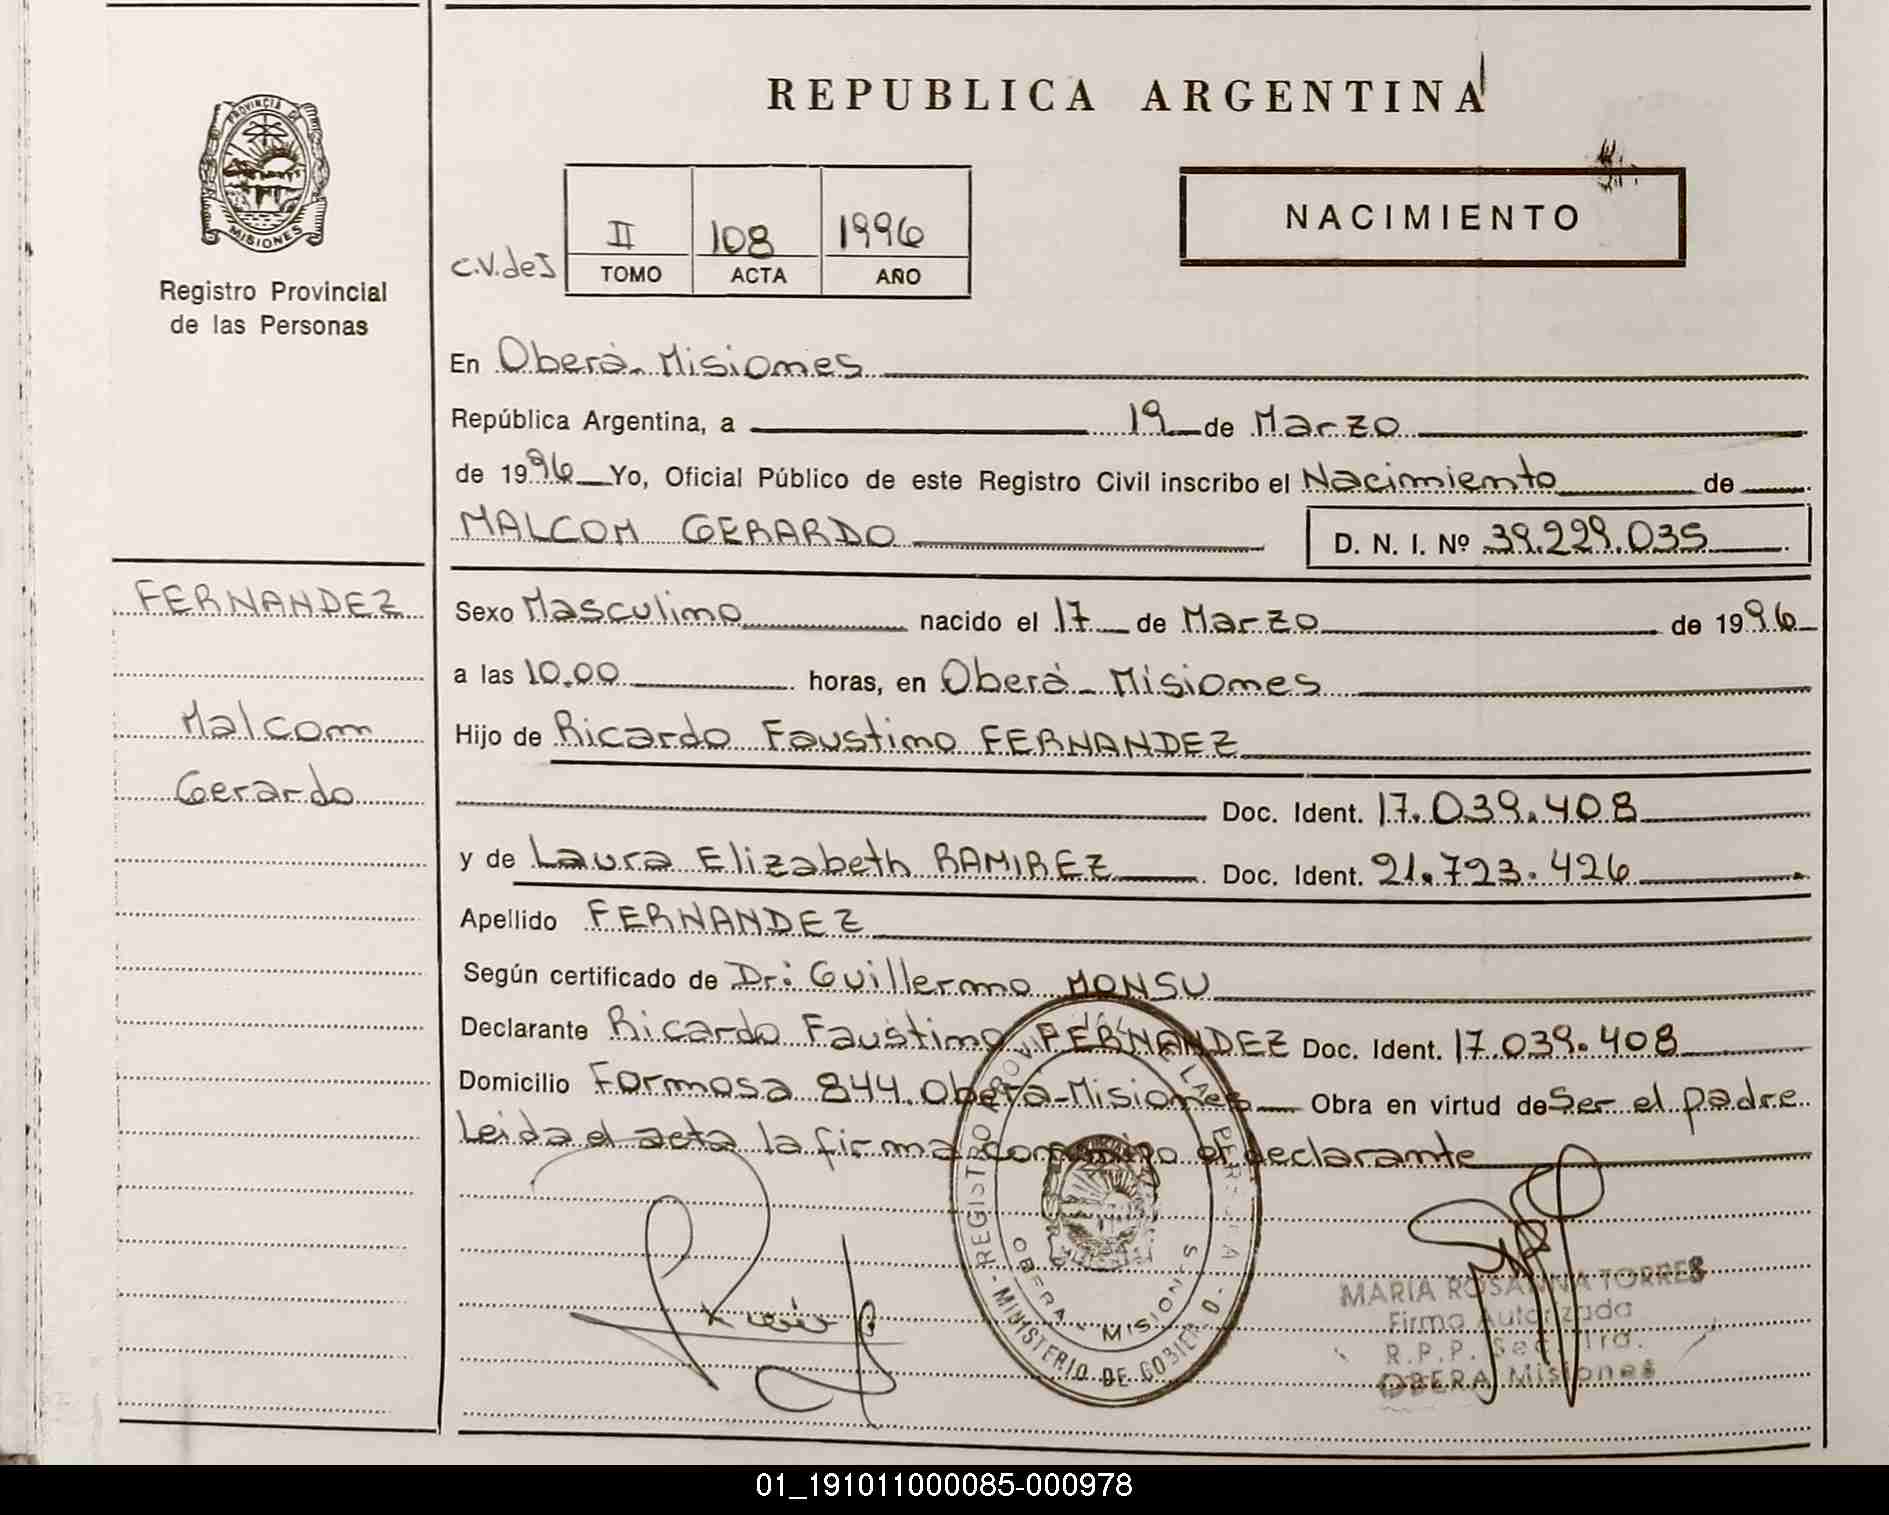 REPUBLICA ARGENTINA
PROVINCIA DE
MISIONES
Registro Provincial
de las Personas
C.V.deI
II 108 1996
TOMO ACTA AÑO
NACIMIENTO
En Oberá-Misiones
República Argentina, a 19 de Marzo
de 1996 Yo, Oficial Público de este Registro Civil inscribo el Nacimiento de
MALCOM GERARDO D. N. I. Nº 39.229.035
FERNANDEZ
Malcom
Gerardo
Sexo Masculino nacido el 17 de Marzo de 1996
a las 10.00 horas, en Oberá-Misiones
Hijo de Ricardo Faustino FERNANDEZ
Doc. Ident. 17.039.408
y de Laura Elizabeth RAMIREZ Doc. Ident. 21.723.426
Apellido FERNANDEZ
Según certificado de Dr: Guillermo MONSU
Declarante Ricardo Faustino FERNANDEZ Doc. Ident. 17.039.408
Domicilio Formosa 844. Oberá-Misiones Obra en virtud de Ser el padre
Leida el acta la firma conmigo el declarante
REGISTRO PROVINCIAL DE LAS PERSONAS
OBERA - MISIONES
-MINISTERIO DE GOBIERNO-
MARIA ROSANNA TORRES
Firma Autorizada
R.P.P.
OBERA Misiones
01_191011000085-000978